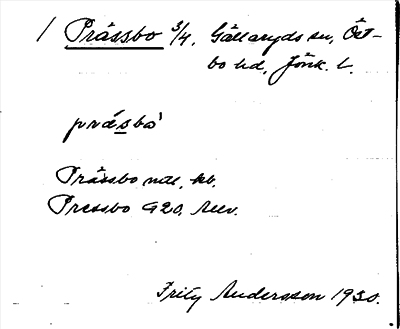 / Prässbo 3/4, Gällaryds sn, Öst-
bo hd, Jönk. l.
präsbo
Prässbo mtl, kb.
Pressbo G20, Mev.
Fritz Andersson 1930.